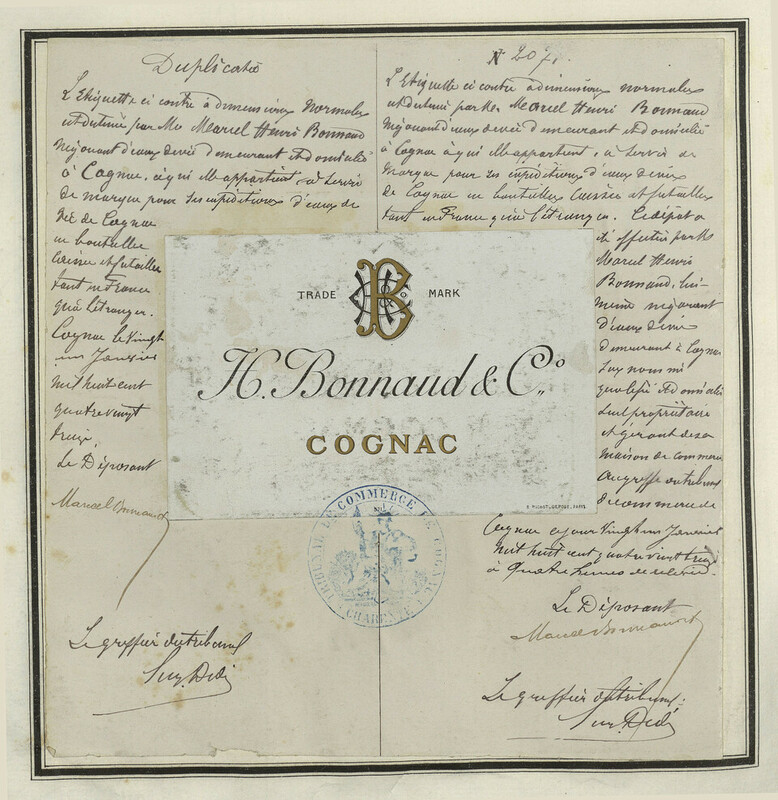 Duplicata
L'Etiquette ci contre à dimensions normales
est détenue par Mr Marcel Henri Bonnaud
négociant d'eaux de vie demeurant et domicilié
à Cognac, à qui elle appartient, à servir
de marque pour ses expéditions d'eaux de
vie de Cognac
en bouteilles
caisses et futailles
tant en France
qu'à l'étranger.
Cognac le vingt
un Janvier
mil huit cent
quatre vingt
treize.
Le Déposant
Marcel Bonnaud
Le greffier du tribunal
N° 207
L'Etiquette ci contre à dimensions normales
est détenue par Mr Marcel Henri Bonnaud
négociant d'eaux de vie demeurant et domicilié
à Cognac à qui elle appartient, à servir de
marque pour ses expéditions d'eaux de vie
de Cognac en bouteilles caisses et futailles
tant en France qu'à l'étranger. Le dépôt a
été effectué par Mr
Marcel Henri
Bonnaud, lui-
même négociant
d'eaux de vie
demeurant à Cognac
qualifié et domicilié
seul propriétaire
et gérant de sa
maison de commerce
au greffe du tribunal
de commerce de
Cognac ce jour vingt un Janvier
mil huit cent quatre vingt treize
à quatre heures de
Le Déposant
Marcel Bonnaud
Le greffier du tribunal
TRADE MARK
B
H. Bonnaud & Co.
COGNAC
TRIBUNAL DE COMMERCE DE COGNAC
CHARENTE